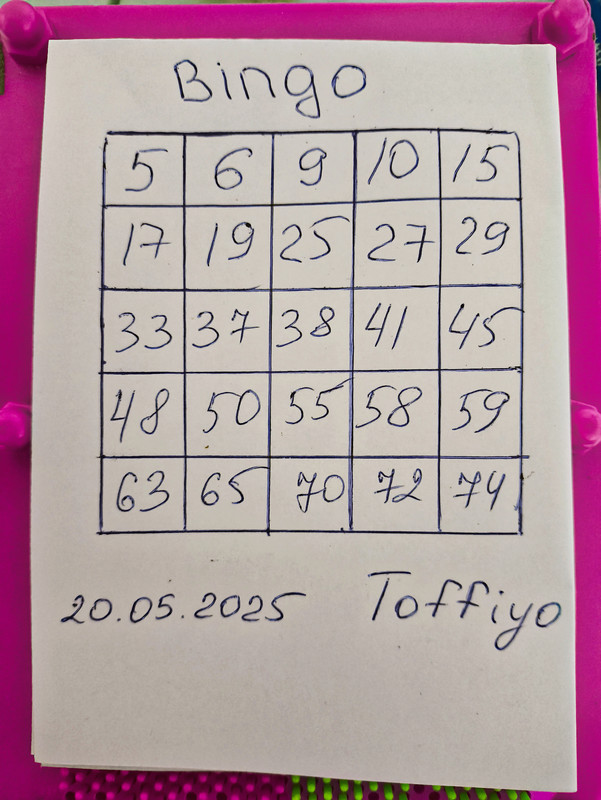 Bingo
5 6 9 10 15
17 19 25 27 29
33 37 38 41 45
48 50 55 58 59
63 65 70 72 74
20.05.2025 Toffiyo